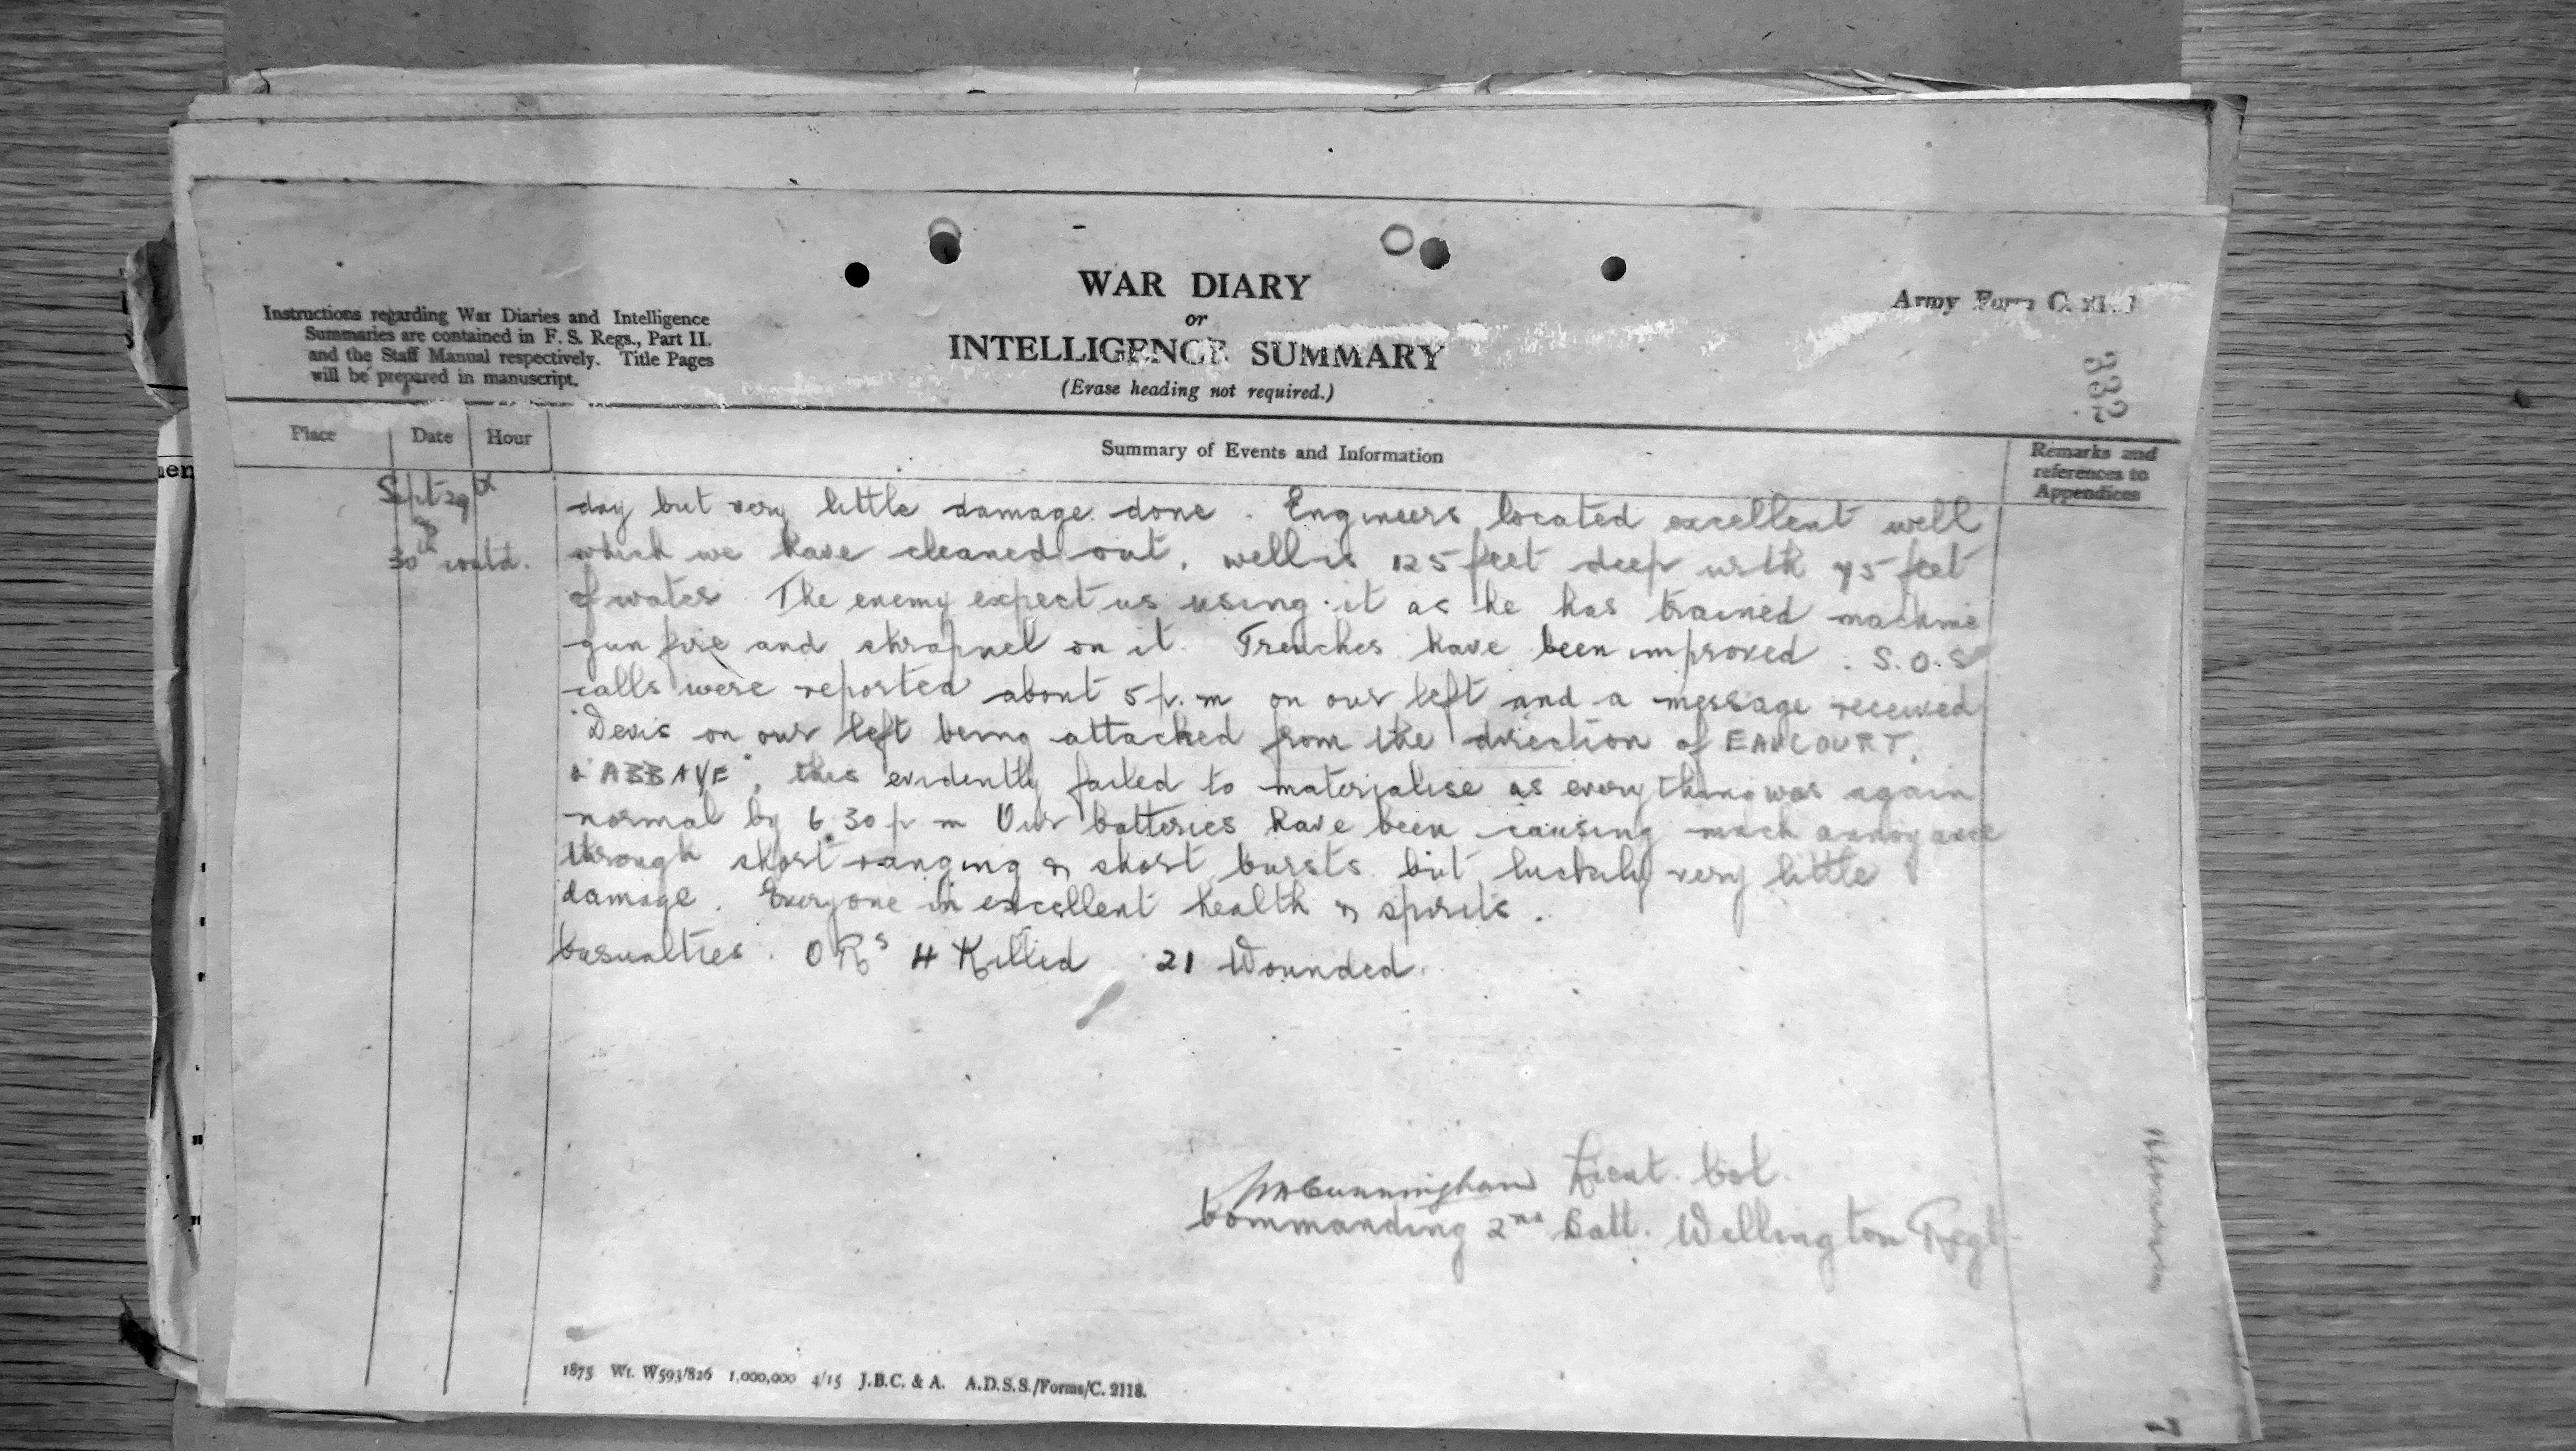 WAR DIARY
or
INTELLIGENCE SUMMARY
(Erase heading not required.)
Instructions regarding War Diaries and Intelligence
Summaries are contained in F. S. Regs., Part II.
and the Staff Manual respectively. Title Pages
will be prepared in manuscript.
Army Form C.
332
Place Date Hour
Summary of Events and Information
Remarks and
references to
Appendices
Sept 29th
&
30th contd.
day but very little damage done. Engineers located excellent well
which we have cleaned out, well is 125 feet deep with 45 feet
of water. The enemy expect us using it as he has trained machine
gun fire and shrapnel on it. Trenches have been improved. S.O.S
calls were reported about 5 p.m on our left and a message received
"Devis on our left being attacked from the direction of EAUCOURT,
L'ABBAYE", this evidently failed to materialise as everything was again
normal by 6.30 p m Our batteries have been causing much annoyance
through short ranging & short bursts but luckily very little
damage. Everyone in excellent health & spirits.
Casualties. O Rs 4 Killed 21 Wounded.
Cunningham Lieut. Col.
Commanding 2nd Batt. Wellington Regt
1875 Wt. W593/826 1,000,000 4/15 J.B.C. & A. A.D.S.S./Forms/C. 2118.
7